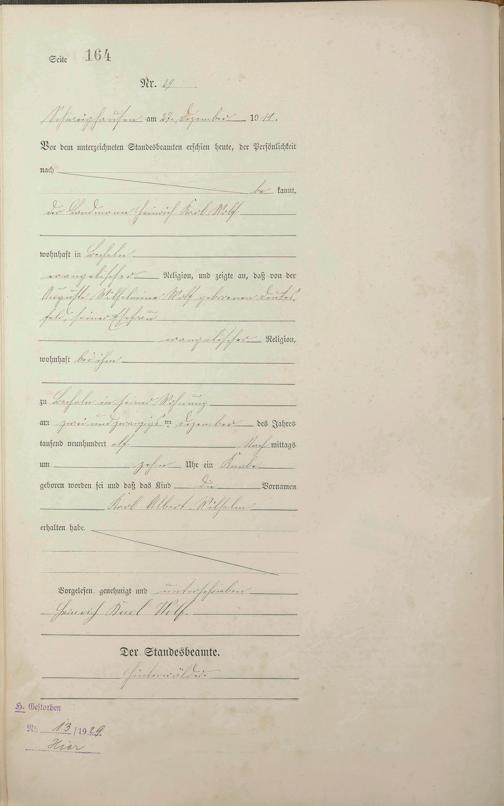 Seite 164
Nr. 29
Schweighausen am 27. Dezember 1911.
Vor dem unterzeichneten Standesbeamten erschien heute, der Persönlichkeit
nach
be kannt,
der Landmann Heinrich Karl Wolf
wohnhaft in Becheln
evangelischer Religion, und zeigte an, daß von der
Auguste Wilhelmine Wolf geborenen
feld, seiner Ehefrau
evangelischer Religion,
wohnhaft bei ihm
zu Becheln in seiner Wohnung
am zwei und zwanzigsten Dezember des Jahres
tausend neunhundert elf Nach mittags
um zehn Uhr ein Knabe
geboren worden sei und daß das Kind die Vornamen
Karl Albert Wilhelm
erhalten habe.
Vorgelesen, genehmigt und unterschrieben
Heinrich Karl Wolf.
Der Standesbeamte.
H. Gestorben
Nr. 13/1929
Hier